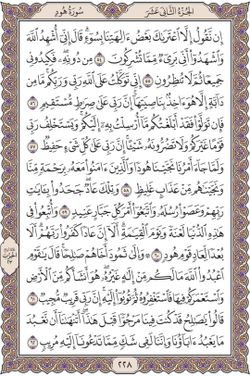 الجزء الثاني عشر
سورة هود
إِن نَّقُولُ إِلَّا ٱعْتَرَىٰكَ بَعْضُ ءَالِهَتِنَا بِسُوٓءٍ ۗ قَالَ إِنِّىٓ أُشْهِدُ ٱللَّهَ
وَٱشْهَدُوٓا۟ أَنِّى بَرِىٓءٌ مِّمَّا تُشْرِكُونَ ٥٤ مِن دُونِهِۦ ۖ فَكِيدُونِى
جَمِيعًا ثُمَّ لَا تُنظِرُونِ ٥٥ إِنِّى تَوَكَّلْتُ عَلَى ٱللَّهِ رَبِّى وَرَبِّكُم ۚ مَّا مِن
دَآبَّةٍ إِلَّا هُوَ ءَاخِذٌۢ بِنَاصِيَتِهَآ ۚ إِنَّ رَبِّى عَلَىٰ صِرَٰطٍ مُّسْتَقِيمٍ ٥٦
فَإِن تَوَلَّوْا۟ فَقَدْ أَبْلَغْتُكُم مَّآ أُرْسِلْتُ بِهِۦٓ إِلَيْكُمْ ۚ وَيَسْتَخْلِفُ رَبِّى
قَوْمًا غَيْرَكُمْ وَلَا تَضُرُّونَهُۥ شَيْـًٔا ۚ إِنَّ رَبِّى عَلَىٰ كُلِّ شَىْءٍ حَفِيظٌ ٥٧
وَلَمَّا جَآءَ أَمْرُنَا نَجَّيْنَا هُودًا وَٱلَّذِينَ ءَامَنُوا۟ مَعَهُۥ بِرَحْمَةٍ مِّنَّا
وَنَجَّيْنَٰهُم مِّنْ عَذَابٍ غَلِيظٍ ٥٨ وَتِلْكَ عَادٌ ۖ جَحَدُوا۟ بِـَٔايَٰتِ
رَبِّهِمْ وَعَصَوْا۟ رُسُلَهُۥ وَٱتَّبَعُوٓا۟ أَمْرَ كُلِّ جَبَّارٍ عَنِيدٍ ٥٩ وَأُتْبِعُوا۟ فِى
هَٰذِهِ ٱلدُّنْيَا لَعْنَةً وَيَوْمَ ٱلْقِيَٰمَةِ ۗ أَلَآ إِنَّ عَادًا كَفَرُوا۟ رَبَّهُمْ ۗ أَلَا
بُعْدًا لِّعَادٍ قَوْمِ هُودٍ ٦٠ ۞ وَإِلَىٰ ثَمُودَ أَخَاهُمْ صَٰلِحًا ۚ قَالَ يَٰقَوْمِ
ٱعْبُدُوا۟ ٱللَّهَ مَا لَكُم مِّنْ إِلَٰهٍ غَيْرُهُۥ ۖ هُوَ أَنشَأَكُم مِّنَ ٱلْأَرْضِ
وَٱسْتَعْمَرَكُمْ فِيهَا فَٱسْتَغْفِرُوهُ ثُمَّ تُوبُوٓا۟ إِلَيْهِ ۚ إِنَّ رَبِّى قَرِيبٌ مُّجِيبٌ ٦١
قَالُوا۟ يَٰصَٰلِحُ قَدْ كُنتَ فِينَا مَرْجُوًّا قَبْلَ هَٰذَآ ۖ أَتَنْهَىٰنَآ أَن نَّعْبُدَ
مَا يَعْبُدُ ءَابَآؤُنَا وَإِنَّنَا لَفِى شَكٍّ مِّمَّا تَدْعُونَآ إِلَيْهِ مُرِيبٍ ٦٢
٢٢٨